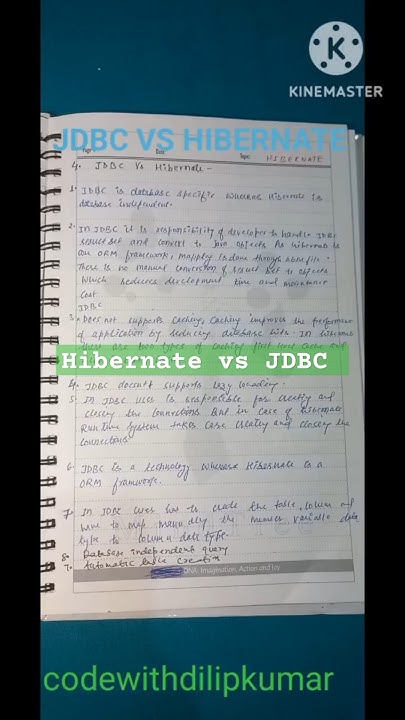 KINEMASTER
JDBC VS HIBERNATE
Page
Date
Topic HIBERNATE
4. JDBC Vs Hibernate -
1. JDBC is database specific whereas Hibernate is
database independent.
2. In JDBC it is responsibility of developer to handle JDBC
result set and convert to Java objects. As Hibernate is
an ORM framework, mapping is done through hbm file.
There is no manual conversion of result set to objects
which reduces development time and maintance
cost
JDBC
3. Does not supports caching, Caching improves the performance
of application by reducing database hits. In Hibernate
there are two types of caching first level cache and
Hibernate vs JDBC
4. JDBC doesn't supports lazy loading.
5. In JDBC user is responsible for creating and
closing the connections. But in case of Hibernate
Runtime system takes care creating and closing the
connections
6. JDBC is a technology whereas Hibernate is a
ORM framework.
7. In JDBC user has to create the table, column and
have to map manually the member variable data
type to column data type.
8. Database independent query
9. Automatic table creation
DNA: Imagination, Action and Joy
codewithdilipkumar